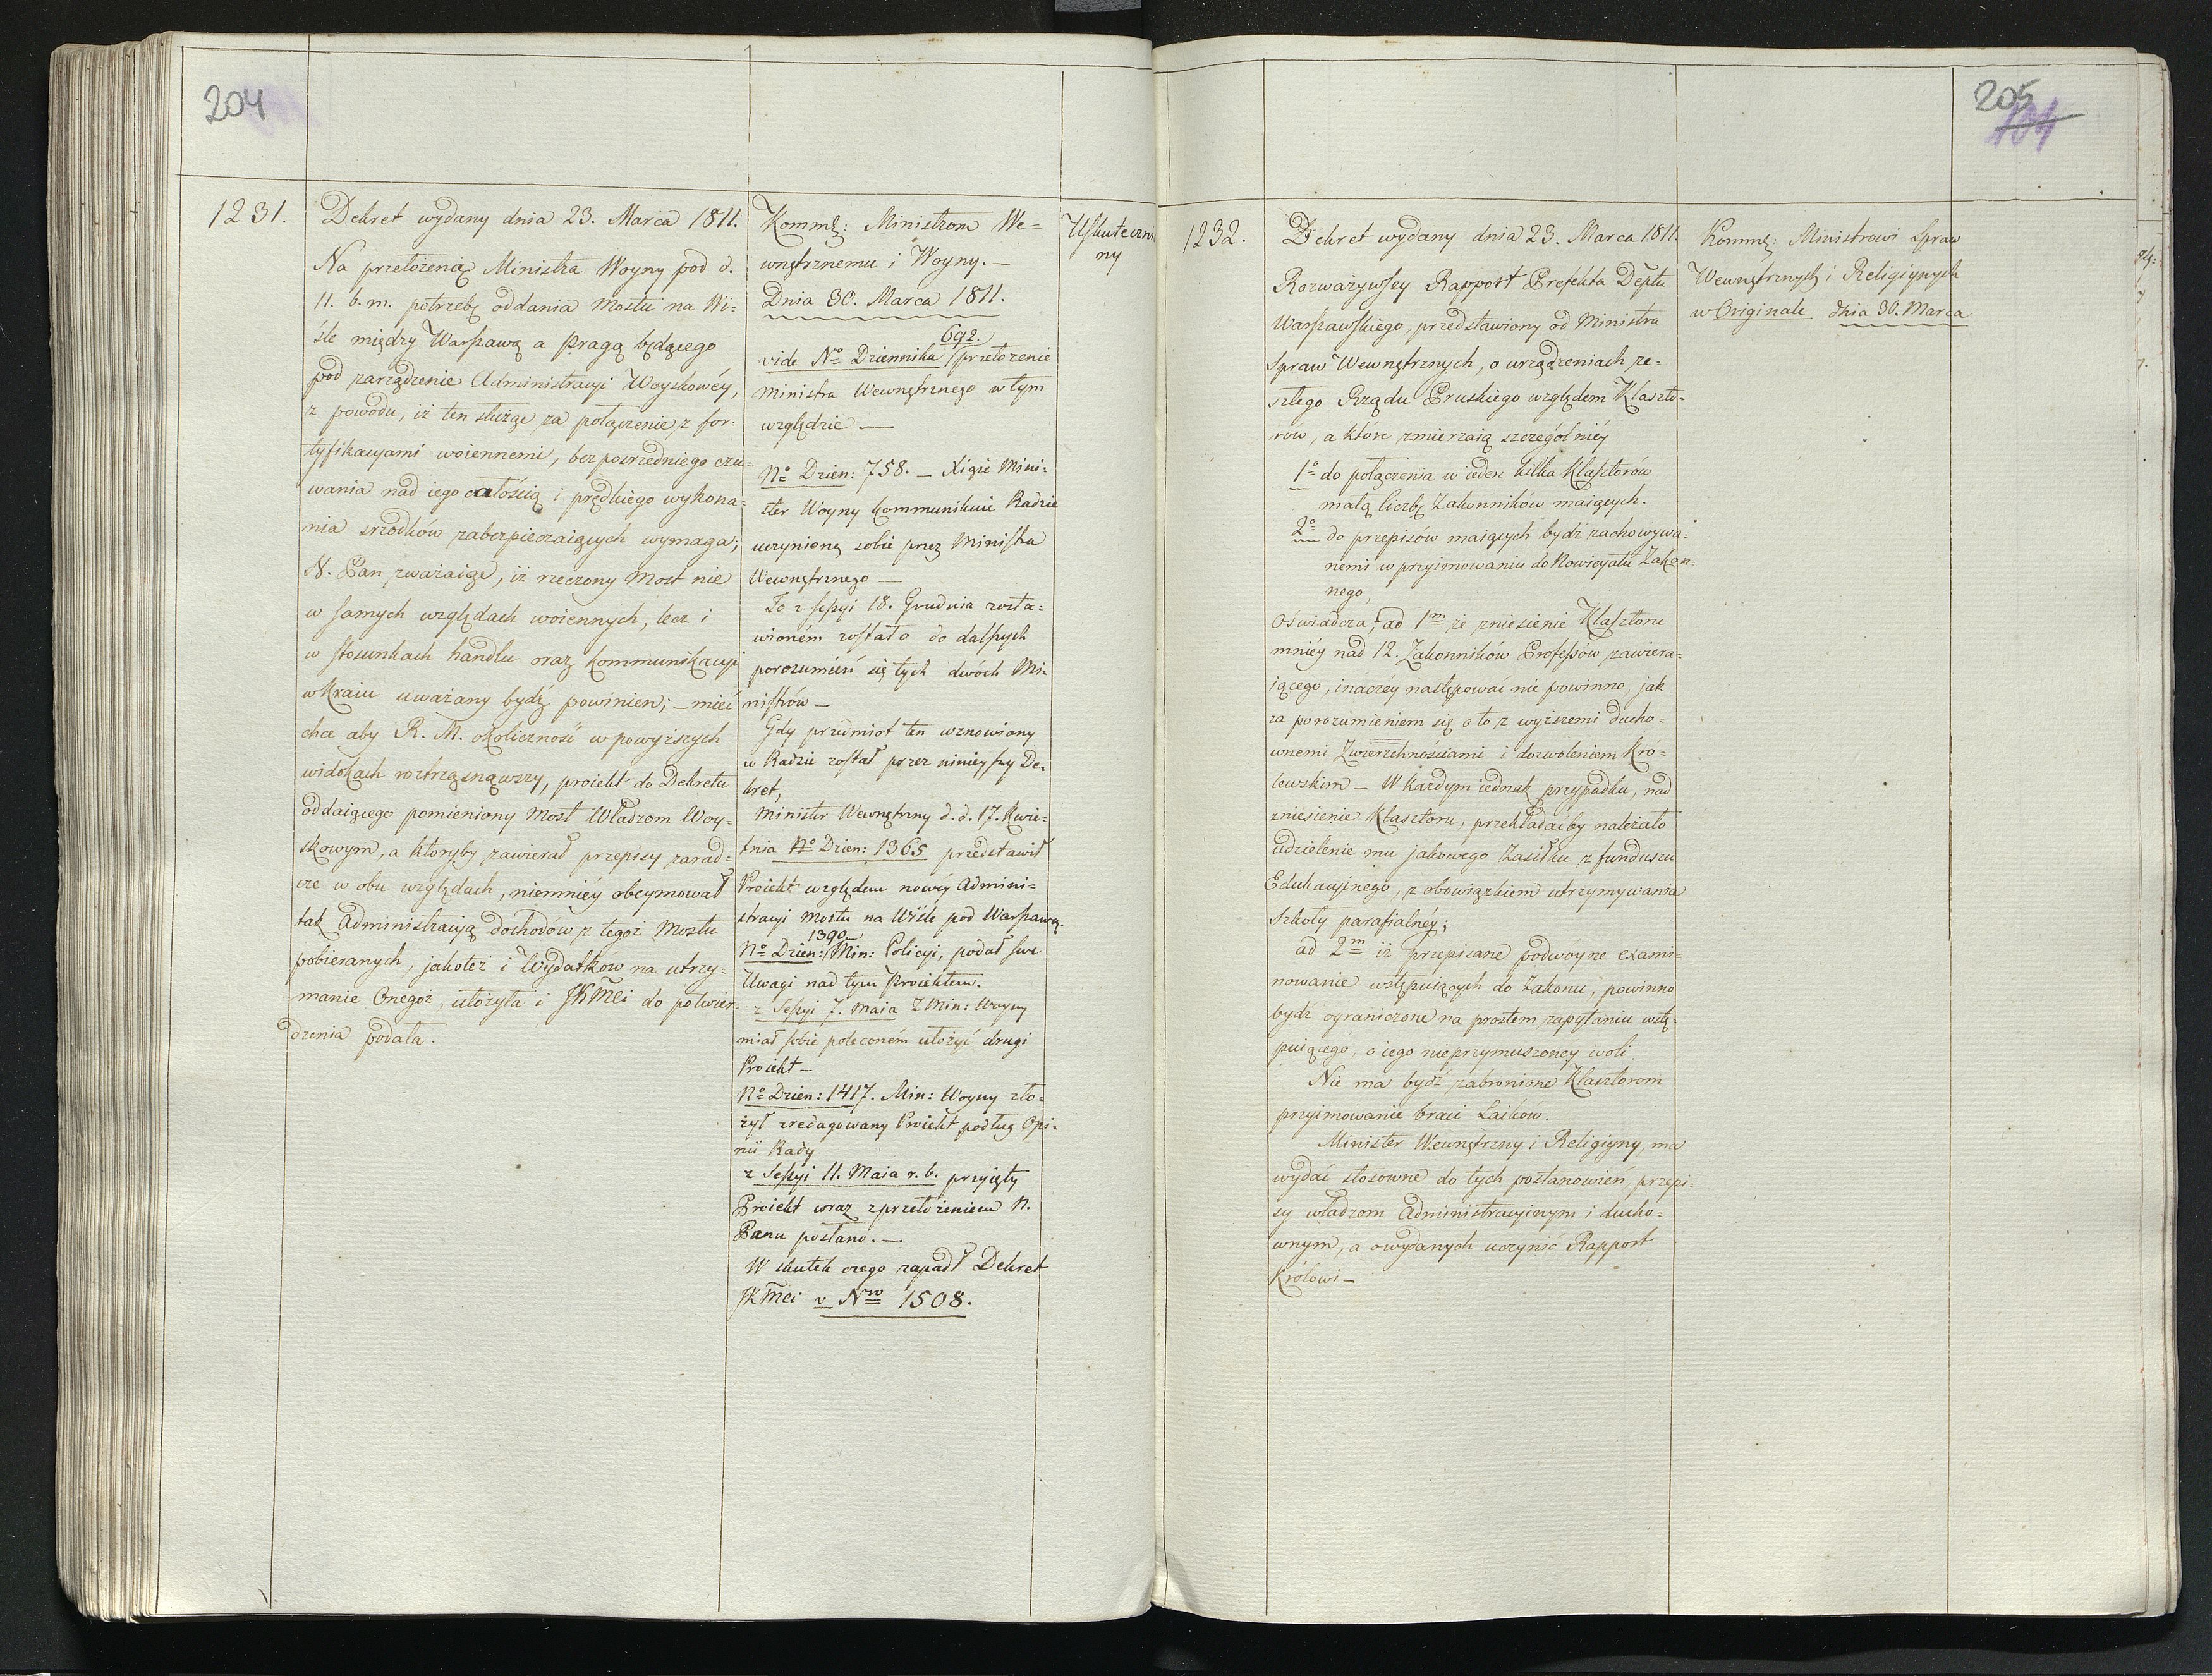 204
1231.
Dekret wydany dnia 23. Marca 1811.
Na przełożenie Ministra Woyny pod d.
11. b. m. potrzebę oddania mostu na Wi=
śle między Warszawą a Pragą będącego
pod zarządzenie Administracyi Woyskowéy,
z powodu, iż ten służąc za połączenie z for=
tyfikacyami woiennemi, bezpośredniego czu=
wania nad iego całością i prędkiego wykona=
nia srzodków zabezpieczaiących wymaga;
N. Pan zważaiąc, iż rzeczony Most nie
w samych względach woiennych, lecz i
w stosunkach handlu oraz kommunikacyi
w Kraiu uważany bydź powinien; – mieć
chce aby R. M. okoliczność w powyższych
widokach roztrząsnąwszy, proiekt do Dekretu
oddaiącego pomieniony Most Władzom Woy=
skowym, a któryby zawierał przepisy zarad=
cze w obu względach, niemniéy obeymował
tak Administracyą dochodów z tegoż Mostu
pobieranych, jakoteż i Wydatków na utrzy=
manie Onegoż, ułożyła i JKMci do potwier=
dzenia podała.
Kommę: Ministrom We=
wnętrznemu i Woyny. –
Dnia 30. Marca 1811.
692.
vide No Dziennika przełożenie
Ministra Wewnętrznego w tym
względzie –
No Dzien: 758. – Xiąże Mini=
ster Woyny kommunikuie Radzie
uczynioną sobie przez Ministra
Wewnętrznego –
To z Sessyi 18. Grudnia zosta=
wioném zostało do dalszych
porozumień się tych dwóch Mi=
nistrów –
Gdy przedmiot ten wznowiony
w Radzie został przez ninieyszy De=
kret,
Minister Wewnętrzny d. d. 17. Kwie=
tnia No Dzien: 1365 przedstawił
Proiekt względem nowéy Admini=
stracyi Mostu na Wiśle pod Warszawą.
1390
No Dzien: Min: Policyi, podał swe
Uwagi nad tym Proiektem.
z Sessyi 7. Maia Min: Woyny
miał sobie poleconém ułożyć drugi
Proiekt –
No Dzien: 1417. Min: Woyny zło=
żył zredagowany Proiekt podług Opi=
nii Rady
z Sessyi 11. Maia r. b. przyięty
Proiekt wraz z przełożeniem N.
Panu posłano. –
W skutek czego zapadł Dekret
JKMci v Nro 1508.
Uskuteczni
ny
205
104
1232.
Dekret wydany dnia 23. Marca 1811.
Rozważywszy Rapport Prefekta Deptu
Warszawskiego, przedstawiony od Ministra
Spraw Wewnętrznych, o urządzeniach ze=
szłego Rządu Pruskiego względem Klaszto=
rów, a które zmierzaią szczególniéy
1o do połączenia w ieden kilka Klasztorów
małą liczbę Zakonników maiących.
2o do przepisów maiących bydź zachowywa=
nemi w przyimowaniu do Nowicyatu Zakon=
nego,
oświadcza; ad 1m że zniesienie Klasztoru
mniéy nad 12. Zakonników Professów zawiera=
iącego, inaczéy następować nie powinno, jak
za porozumieniem się o to z wyższemi ducho=
wnemi Zwierzchnościami i dozwoleniem Kró=
lewskim – W każdym iednak przypadku, nad
zniesienie Klasztoru, przekładaćby należało
udzielenie mu jakowego Zasiłku z funduszu
Edukacyjnego, z obowiązkiem utrzymywania
Szkoły parafialnéy;
ad 2m iż przepisane podwóyne exami=
nowanie wstępuiących do Zakonu, powinno
bydź ograniczone na prostem zapytaniu wstę=
puiącego, o iego nieprzymuszoney woli.
Nie ma bydź zabronione Klasztorom
przyimowanie braci Laików.
Minister Wewnętrzny i Religiyny, ma
wydać stosowne do tych postanowień, przepi=
sy władzom Administracyinym i ducho=
wnym, a o wydanych uczynić Rapport
Królowi –
Kommę: Ministrowi Spraw
Wewnętrznych i Religiynych
w Originale dnia 30. Marca